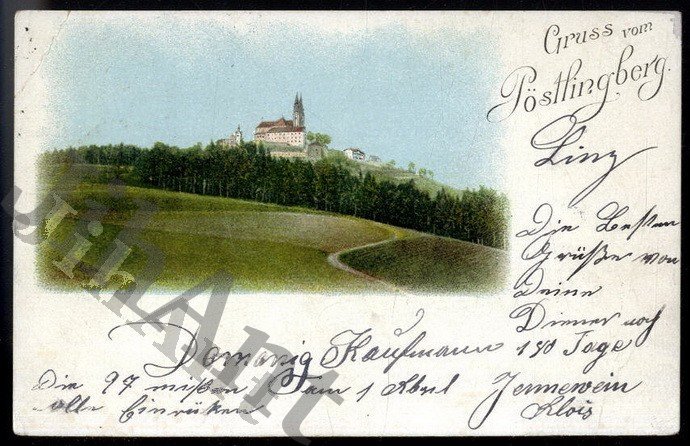 Gruss vom
Pöstlingberg.
Linz
Die Besten
Grüße von
Deine
Diener noch
190 Tage
Kaufmann
Die 97 müßen Fam 1 Abril
alle Einrüken
Jennewein
Alois
JihAnt